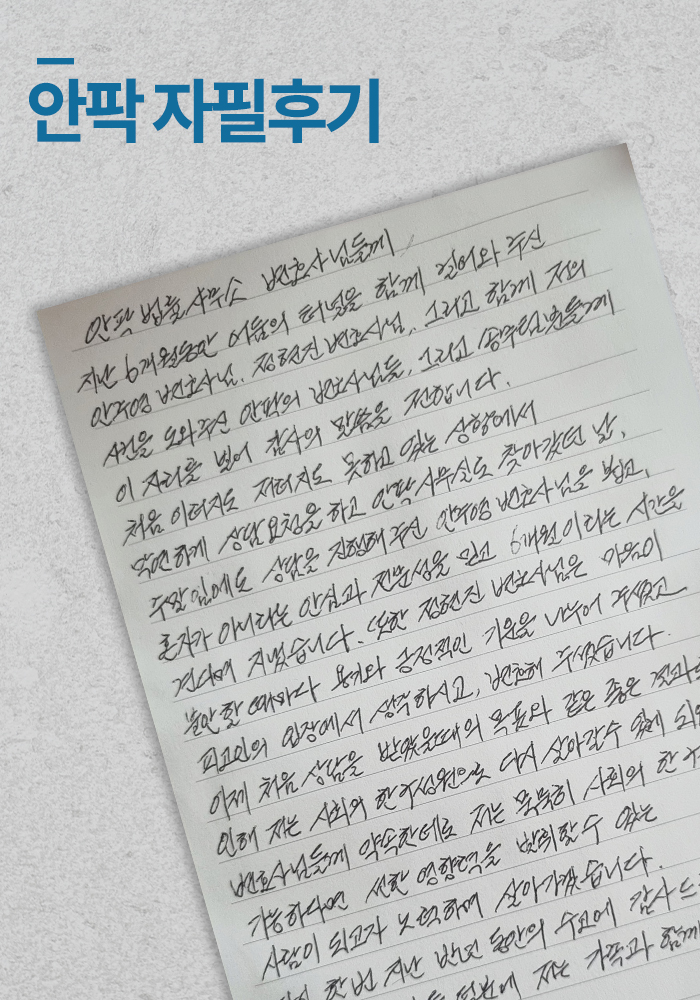 안팍 자필후기
안팍 법률사무소 변호사님들께
지난 6개월동안 어둠의 터널을 함께 걸어와 주신
안주영 변호사님, 정현진 변호사님, 그리고 함께 저의
사건을 도와주신 안팍의 변호사님들, 그리고 송무팀원들께
이 자리를 빌어 감사의 말씀을 전합니다.
처음 이러지도 저러지도 못하고 있는 상황에서
막연하게 상담요청을 하고 안팍 사무실로 찾아갔던 날,
주말임에도 상담을 진행해주신 안주영 변호사님을 뵙고,
혼자가 아니라는 안심과 전문성을 믿고 6개월이라는 시간을
견디며 지냈습니다. 또한 정현진 변호사님은 마음이
불안할 때마다 용기와 긍정적인 기운을 나누어 주셨고
피고인의 입장에서 생각하시고, 변호해 주셨습니다.
이제 처음 상담을 받았을때의 목표와 같은 좋은 결과로
인해 저는 사회의 한 구성원으로 다시 살아갈수 있게
변호사님들께 약속한대로 저는 묵묵히 사회의 한
가능하다면 선한 영향력을 발휘할 수 있는
사람이 되고자 노력하며 살아가겠습니다.
한번 지난 반년 동안의 수고에 감사드
덕분에 저는 가족과 함께